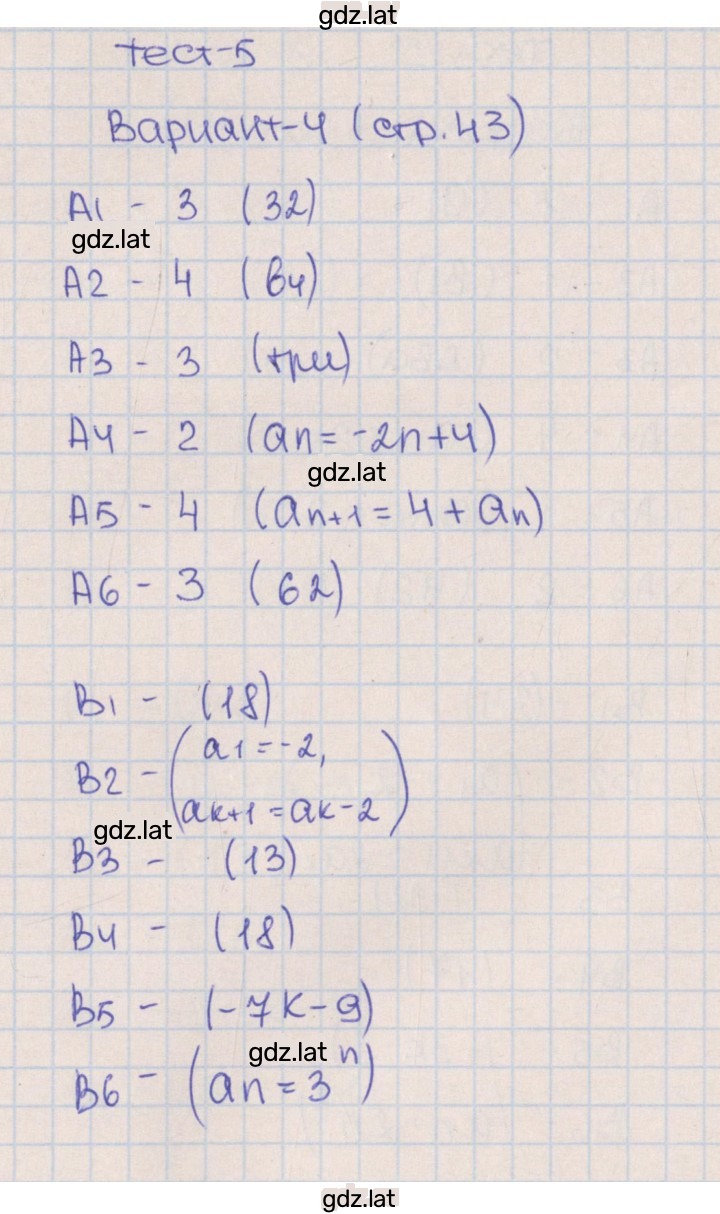 gdz.lat
тест-5
Вариант-4 (стр.43)
A1 - 3 (32)
gdz.lat
A2 - 4 (в4)
A3 - 3 (три)
A4 - 2 (an = -2n+4)
gdz.lat
A5 - 4 (an+1 = 4 + an)
A6 - 3 (62)
B1 - (18)
B2 - (a1 = -2,
ak+1 = ak-2)
gdz.lat
B3 - (13)
B4 - (18)
B5 - (-7k-9)
gdz.lat
B6 - (an = 3ⁿ)
gdz.lat